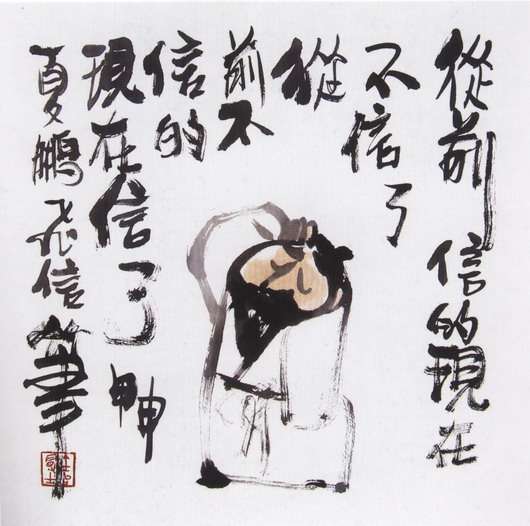 從前信的現在
不信了
從
前不
信的
現在信了甲申
夏鵬飛信筆